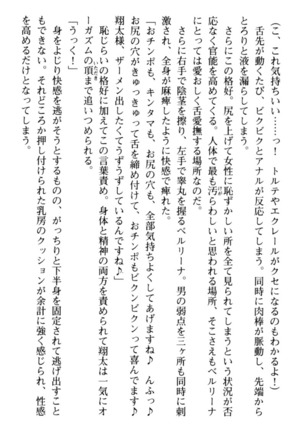 （こ、これ気持ちいい……っ！　トルテやエクレールがクセになるのもわかるよ！）
舌先が動くたび、ビクビクとアナルが反応してしまう。同時に肉棒が脈動し、先端から
とろりと液を漏らしてしまう。
さらにこの格好、尻を上げて女性に恥ずかしい所を全て見られてしまうという状況が否
応なく官能を高めてくる。人体で最も汚らわしいと思われる場所、そこさえもベルリーナ
にとっては愛おしく舌愛撫する場所なのだ。
さらに右手で陰茎を擦り、左手で睾丸を握るベルリーナ。男の弱点を三ヶ所も同時に刺
激され、全身が麻痺したように快感で痺れた。
「おチンポも、キンタマも、お尻の穴も、全部気持ちよくしてあげますね♪　んふっ♪
お尻の穴がきゅっきゅって舌を締め付けて、おチンポもビクンビクンって喜んでます♪
翔太様、ザーメン出したくてうずうずしているんですね♪」
恥じらいの格好に加えてこの言葉責め。身体と精神の両方を責められて翔太は一気にオ
ーガズムの頂まで追いつめられる。
「うっく！」
身をよじり快感を逃がそうとするものの、がっちりと下半身を固定されて逃げ出すこと
もできない。それどころか押し付けられた乳房のクッションが余計に強く感じられ、性感
を高めるだけとなってしまう。